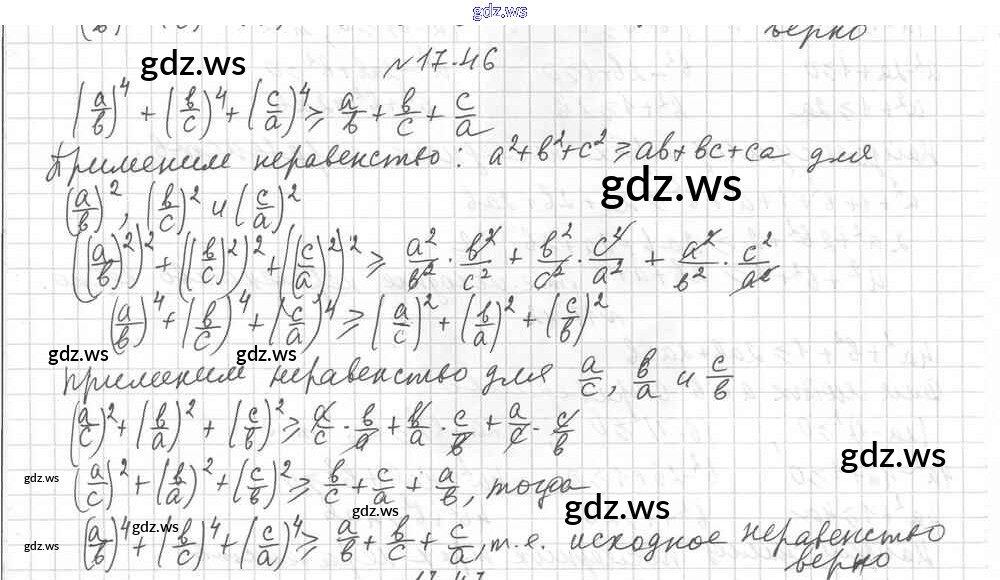 gdz.ws
верно
gdz.ws
№17.46
(a/b)^4 + (b/c)^4 + (c/a)^4 ≥ a/b + b/c + c/a
Применим неравенство: a²+b²+c² ≥ ab+bc+ca для
gdz.ws
(a/b)², (b/c)² и (c/a)²
((a/b)²)² + ((b/c)²)² + ((c/a)²)² ≥ a²/b² · b²/c² + b²/c² · c²/a² + a²/b² · c²/a²
(a/b)^4 + (b/c)^4 + (c/a)^4 ≥ (a/c)² + (b/a)² + (c/b)²
gdz.ws gdz.ws
применим неравенство для a/c, b/a и c/b
(a/c)² + (b/a)² + (c/b)² ≥ a/c · b/a + b/a · c/b + a/c · c/b
gdz.ws
(a/c)² + (b/a)² + (c/b)² ≥ b/c + c/a + a/b, тогда
gdz.ws gdz.ws gdz.ws
gdz.ws
(a/b)^4 + (b/c)^4 + (c/a)^4 ≥ a/b + b/c + c/a, т.е. исходное неравенство
gdz.ws
верно
17.47